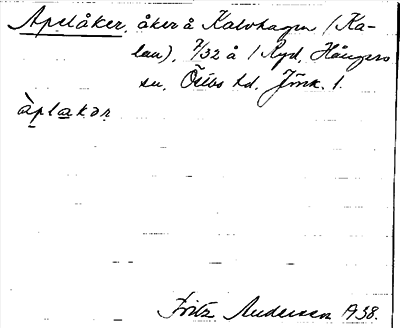 Apelåker, åker å Kalvhagen (Ka-
lau), 7/32 å / Ryd, Hångers
sn, Östbo hd, Jönk. l.
àplakər
Fritz Andersson 1938.